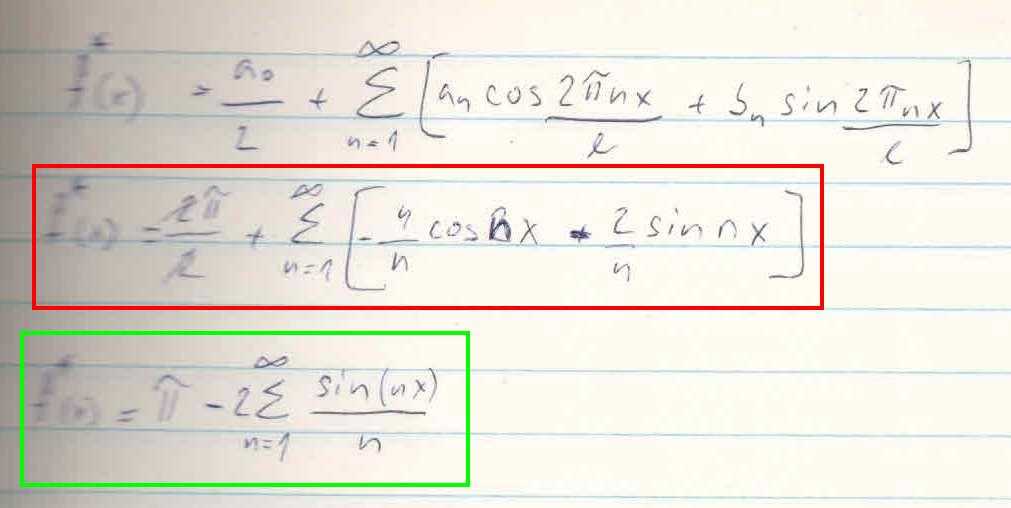 f*(x) = a₀/2 + ∑_{n=1}^{∞} [aₙ cos 2πnx/l + bₙ sin 2πnx/l]
f*(x) = 2π/2 + ∑_{n=1}^{∞} [-4/n cos nx - 2/n sin nx]
f*(x) = π - 2∑_{n=1}^{∞} sin(nx)/n